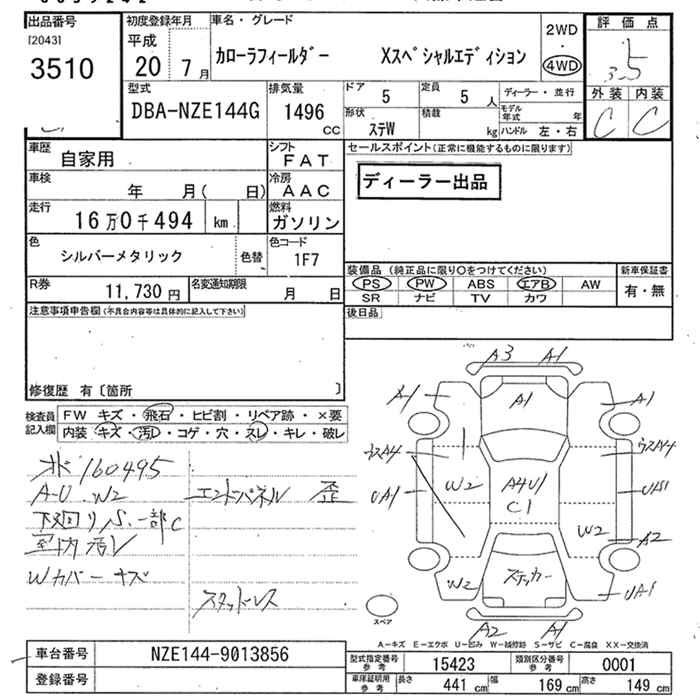 出品番号
[2043]
3510
初度登録年月
平成
20 7月
車名・グレード
カローラフィールダー Xスペシャルエディション
2WD
・
4WD
評価点
3.5
外装 内装
C C
型式
DBA-NZE144G
排気量
1496
CC
ドア
5
定員
5人
形状
ステW
積載
kg
ディーラー・並行
モデル年式 年
ハンドル 左・右
車歴
自家用
シフト
FAT
セールスポイント(正常に機能するものに限ります)
ディーラー出品
車検
年 月( 日)
冷房
AAC
走行
16万0千494 km
燃料
ガソリン
色
シルバーメタリック
色替
色コード
1F7
R券
11,730円
名変通知期限
月 日
装備品 (純正品に限り○をつけてください)
PS PW ABS エアB AW
SR ナビ TV カワ
新車保証書
有・無
後日品
注意事項申告欄(不具合内容等は具体的に記入して下さい)
修復歴 有〔箇所 〕
検査員記入欄
FW キズ・飛石・ヒビ割・リペア跡・×要
内装・キズ・汚レ・コゲ・穴・スレ・キレ・破レ
160495
A-U.W2
エンドパネル 歪
下回りS.一部C
室内汚レ
Wカバーキズ
スタッドレス
A3 A1
A1 A1 A1
ウスA4 ウスA4
W2 A4U1
C1
UA1 US1
W2 A2
W2 ステッカー UA1
A2 A1
スペア
A-キズ E-エクボ U-凹み W-補修跡 S-サビ C-腐食 XX-交換済
車台番号
NZE144-9013856
登録番号
型式指定番号
参考
15423
類別区分番号
参考
0001
車庫証明用
参考
長さ 441cm
幅 169cm
高さ 149cm